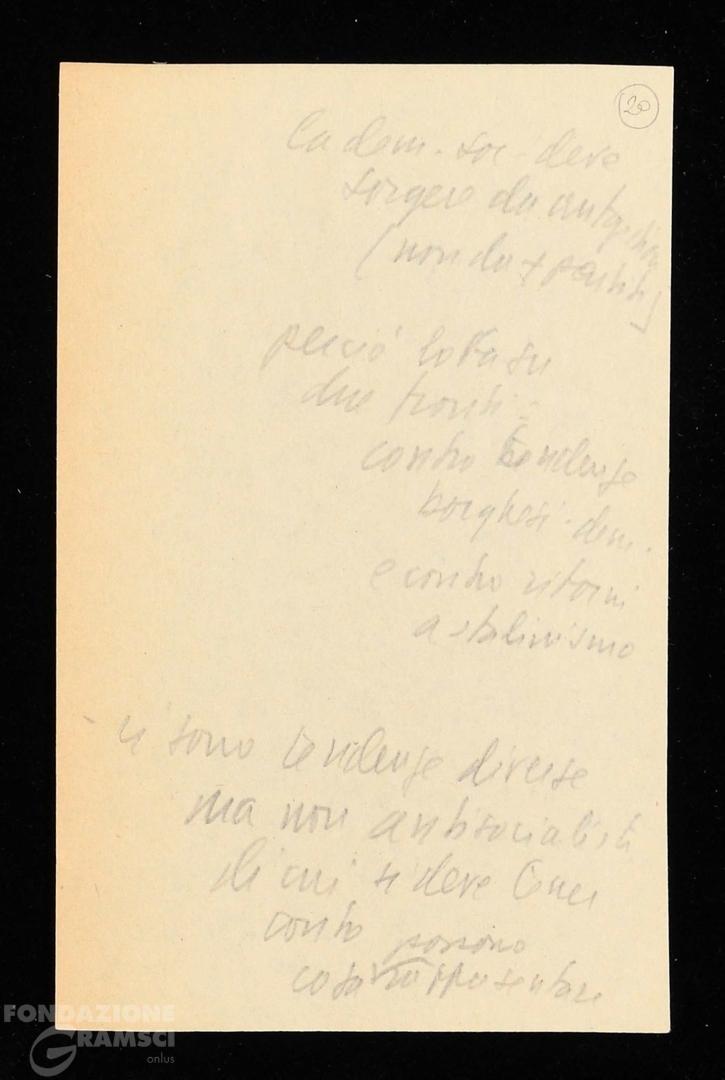 20
La dem. soc. deve
sorgere da autogestione
(non da + partiti)
perciò lotta su
due fronti:
contro tendenze
borghesi-dem.
e contro ritorni
a stalinismo
- ci sono tendenze diverse
ma non antisocialisti
di cui si deve tener
conto
possono
cosa rappresentare
FONDAZIONE
GRAMSCI
onlus